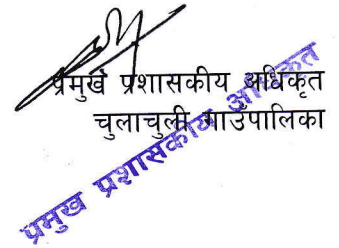 प्रमुख प्रशासकीय अधिकृत
चुलाचुली गाउँपालिका
प्रमुख प्रशासकीय अधिकृत